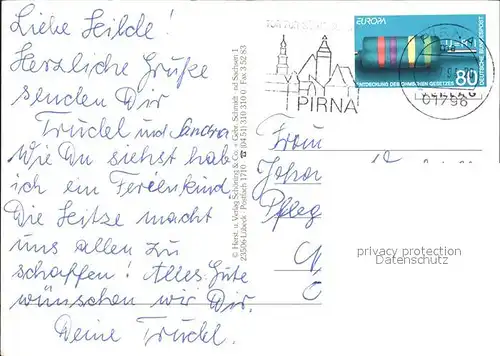 Liebe Hilde!
Herzliche Grüße
senden Dir
Trudel und Sandra
Wie Du siehst hab
ich ein Ferienkind
Die Hitze macht
uns allen zu
schaffen! Alles Gute
wünschen wir Dir.
Deine Trudel.
© Herst. u. Verlag Schöning & Co. + Gebr. Schmidt
23506 Lübeck · Postfach 1710 ☎ (04 51) 310 310 0 Fax 3 52 83
PIRNA
EUROPA
DEUTSCHE BUNDESPOST
ENTDECKUNG DES OHMSCHEN GESETZES
80
01796
Frau
Pfleg
privacy protection
Datenschutz